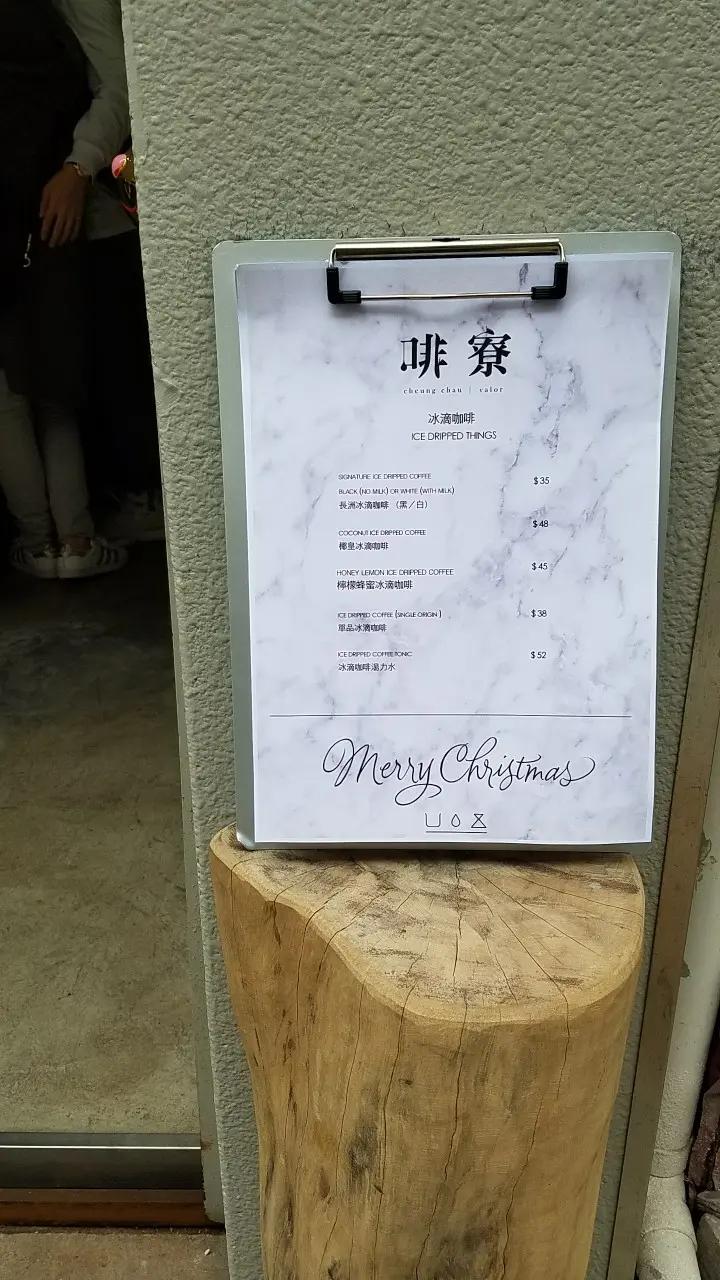 啡寮
cheung chau | valor
冰滴咖啡
ICE DRIPPED THINGS
SIGNATURE ICE DRIPPED COFFEE
BLACK (NO MILK) OR WHITE (WITH MILK) $35
長洲冰滴咖啡 (黑／白)
COCONUT ICE DRIPPED COFFEE $48
椰皇冰滴咖啡
HONEY LEMON ICE DRIPPED COFFEE $45
檸檬蜂蜜冰滴咖啡
ICE DRIPPED COFFEE (SINGLE ORIGIN) $38
單品冰滴咖啡
ICE DRIPPED COFFEE TONIC $52
冰滴咖啡湯力水
Merry Christmas